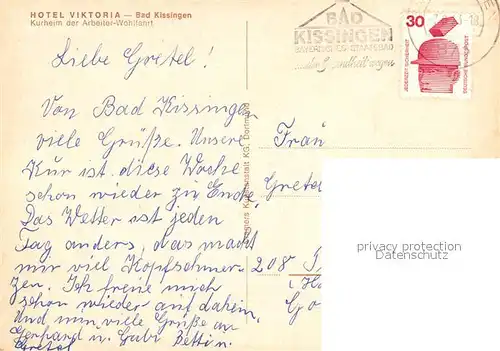 HOTEL VIKTORIA — Bad Kissingen
Kurheim der Arbeiter-Wohlfahrt
BAD
KISSINGEN
BAYERISCHES STAATSBAD
30
JEDERZEIT SICHERHEIT
DEUTSCHE BUNDESPOST
Liebe Gretel!
Von Bad Kissingen
viele Grüße. Unsere
Kur ist diese Woche
schon wieder zu Ende,
Das Wetter ist jeden
Tag anders, das macht
mir viel Kopfschmer-
zen. Ich freue mich
schon wieder auf daheim,
Und nun viele Grüße an
Gerhard u. Gabi Bettin.
Gretel
Kunstanstalt KG. Dortmund
Frau
Grete
208
privacy protection
Datenschutz